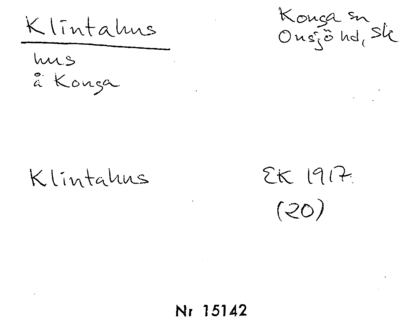 Klintahus
Konga sn
Onsjö hd, Sk
hus
å Konga
Klintahus
EK 1917.
(20)
Nr 15142